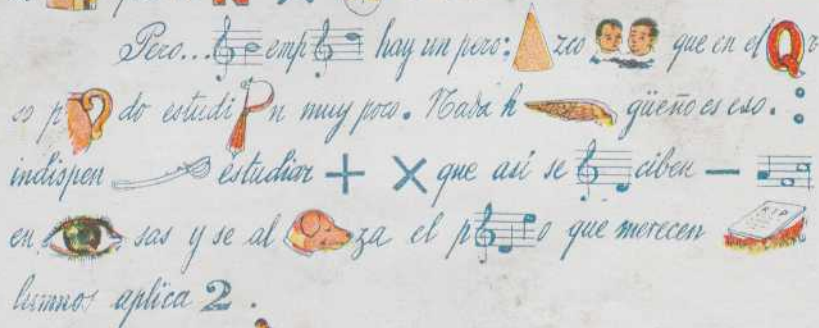 Pero... emp hay un pero: zco que en el Q r
so p do estudi n muy poco. Nada h güeño es eso. :
indispen estudiar + X que así se ciben —
en sas y se al za el p o que merecen
lumnos aplica 2.